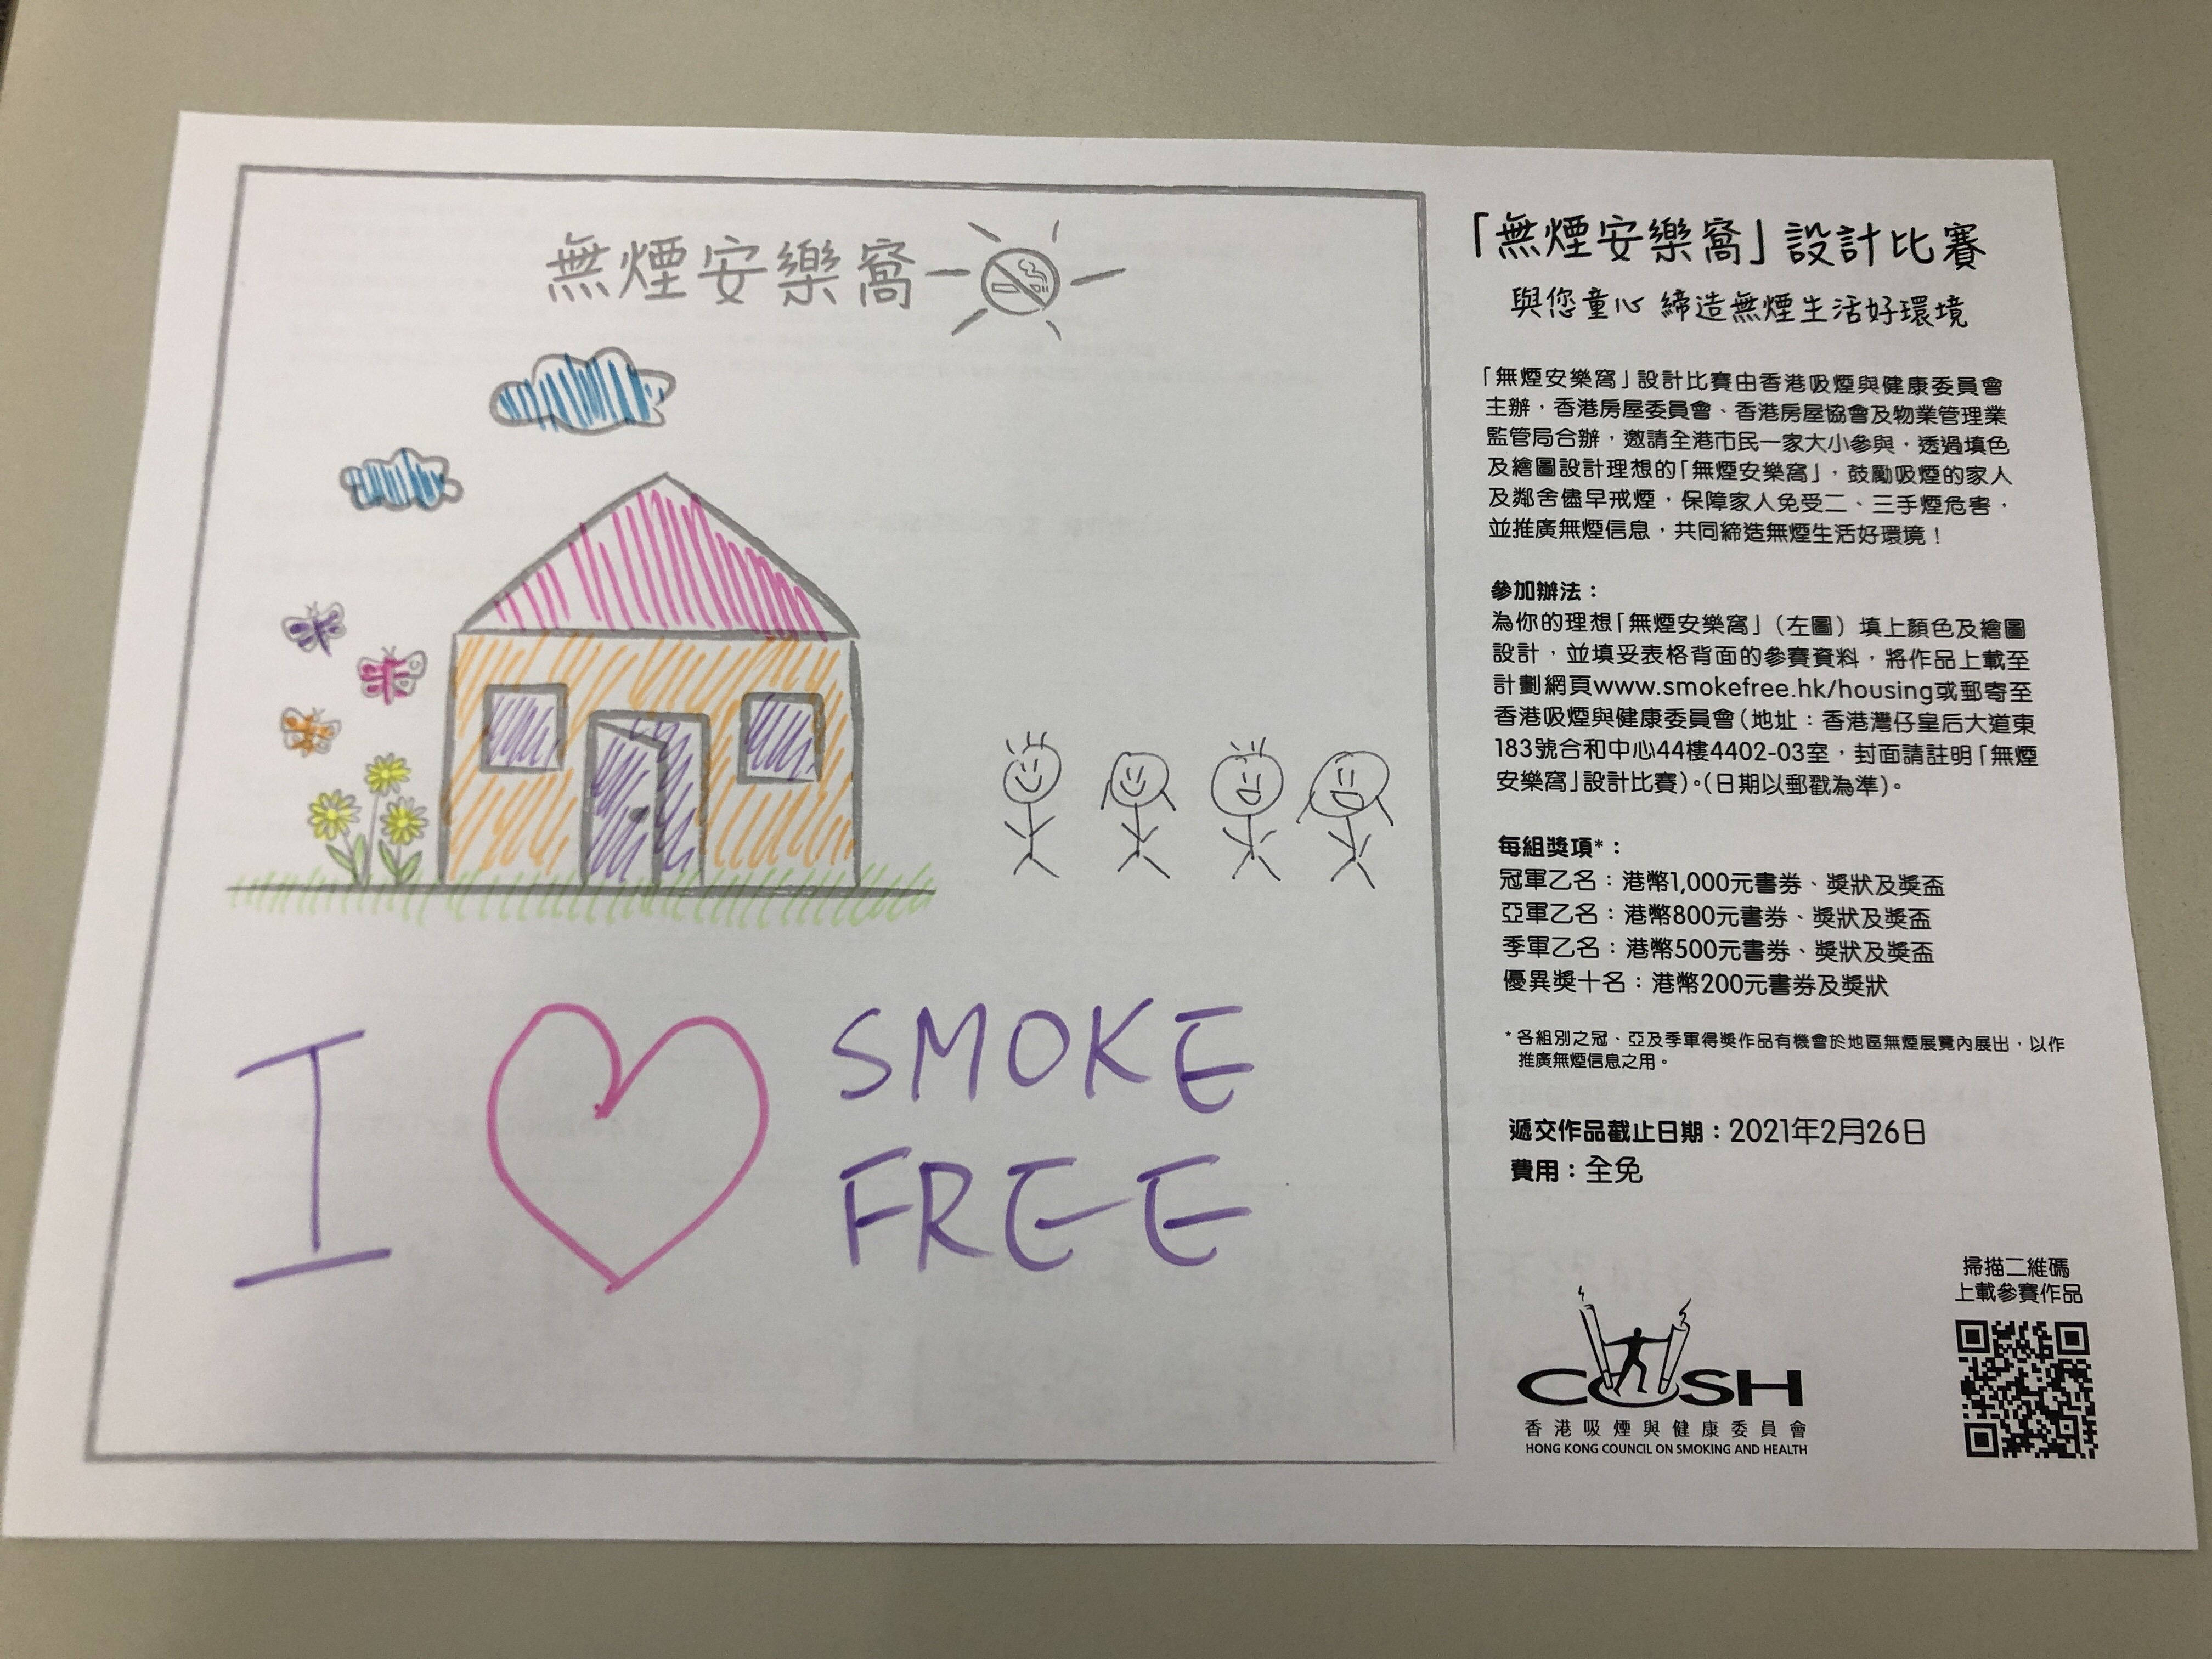 無煙安樂窩
I
SMOKE
FREE
「無煙安樂窩」設計比賽
與您童心 締造無煙生活好環境
「無煙安樂窩」設計比賽由香港吸煙與健康委員會
主辦，香港房屋委員會、香港房屋協會及物業管理業
監管局合辦，邀請全港市民一家大小參與，透過填色
及繪圖設計理想的「無煙安樂窩」，鼓勵吸煙的家人
及鄰舍儘早戒煙，保障家人免受二、三手煙危害，
並推廣無煙信息，共同締造無煙生活好環境！
參加辦法：
為你的理想「無煙安樂窩」（左圖）填上顏色及繪圖
設計，並填妥表格背面的參賽資料，將作品上載至
計劃網頁www.smokefree.hk/housing或郵寄至
香港吸煙與健康委員會（地址：香港灣仔皇后大道東
183號合和中心44樓4402-03室，封面請註明「無煙
安樂窩」設計比賽）。（日期以郵戳為準）。
每組獎項*：
冠軍乙名：港幣1,000元書券、獎狀及獎盃
亞軍乙名：港幣800元書券、獎狀及獎盃
季軍乙名：港幣500元書券、獎狀及獎盃
優異獎十名：港幣200元書券及獎狀
* 各組別之冠、亞及季軍得獎作品有機會於地區無煙展覽內展出，以作
推廣無煙信息之用。
遞交作品截止日期：2021年2月26日
費用：全免
掃描二維碼
上載參賽作品
COSH
香港吸煙與健康委員會
HONG KONG COUNCIL ON SMOKING AND HEALTH